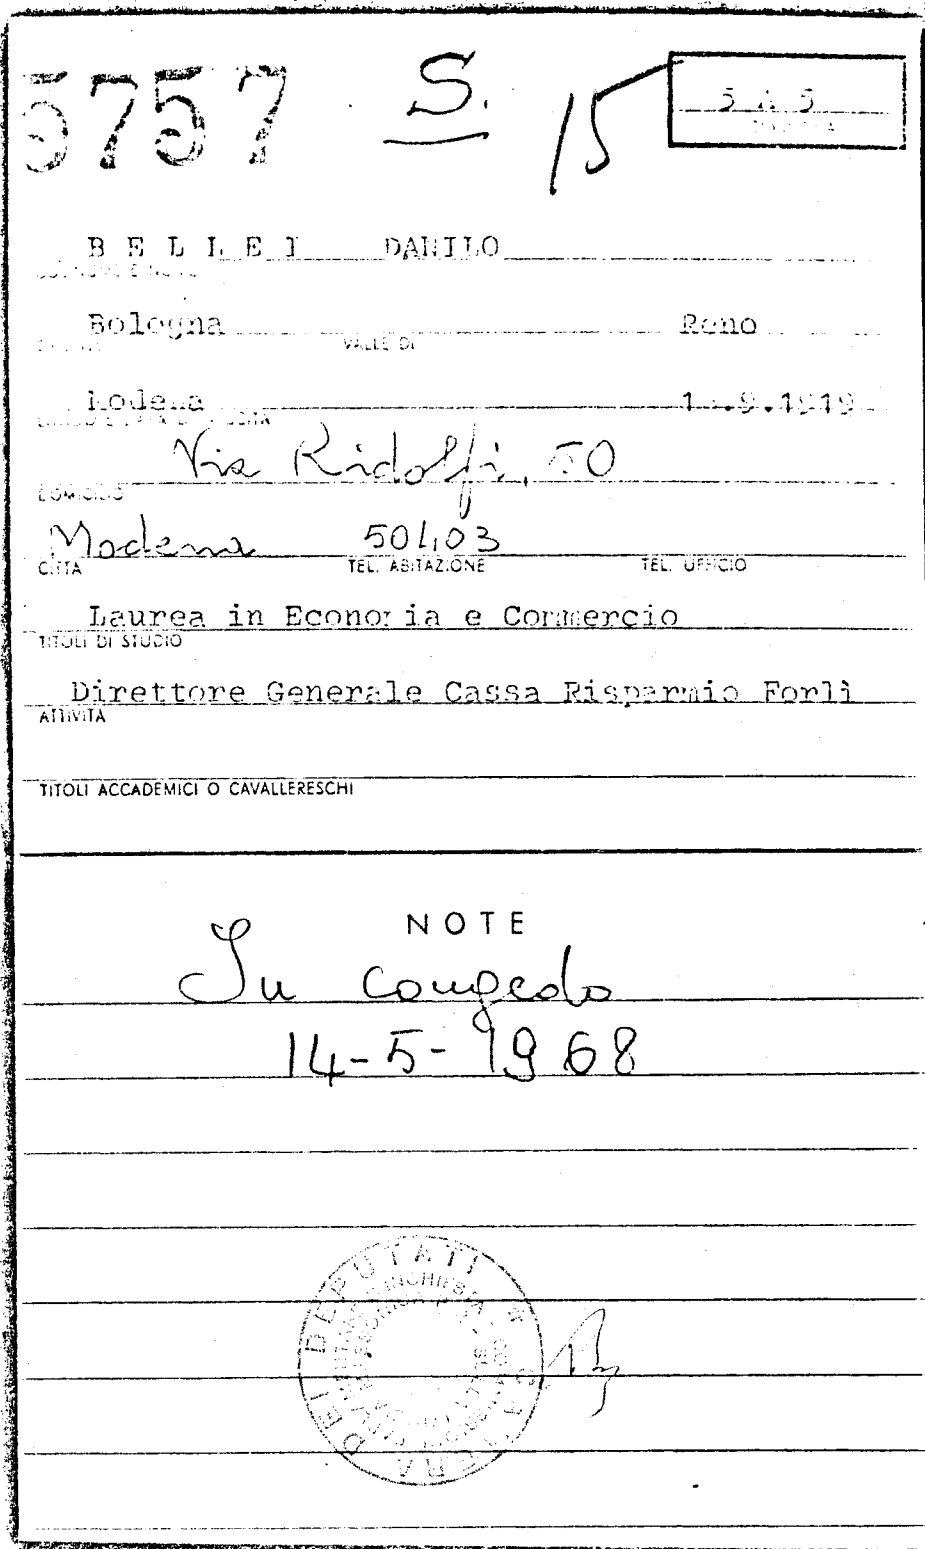 5757 S. 15
BELLEI DANILO
Bologna Reno
VALLE DI
Modena .9.1919
Via Ridolfi, 50
DOMICILIO
Modena 50403
CITTA TEL. ABITAZIONE TEL. UFFICIO
Laurea in Economia e Commercio
TITOLI DI STUDIO
Direttore Generale Cassa Risparmio Forlì
ATTIVITA
TITOLI ACCADEMICI O CAVALLERESCHI
NOTE
In congedo
14-5-1968
CAMERA DEI DEPUTATI